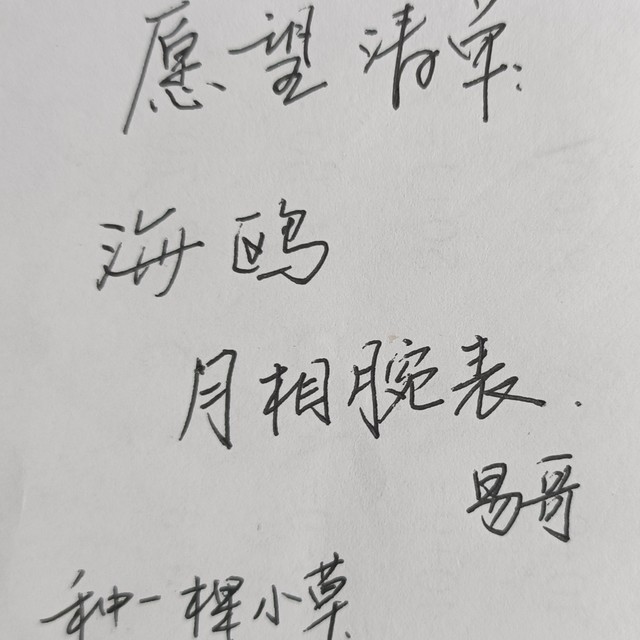 愿望清单:
海鸥
月相腕表.
易哥
种一棵小草.